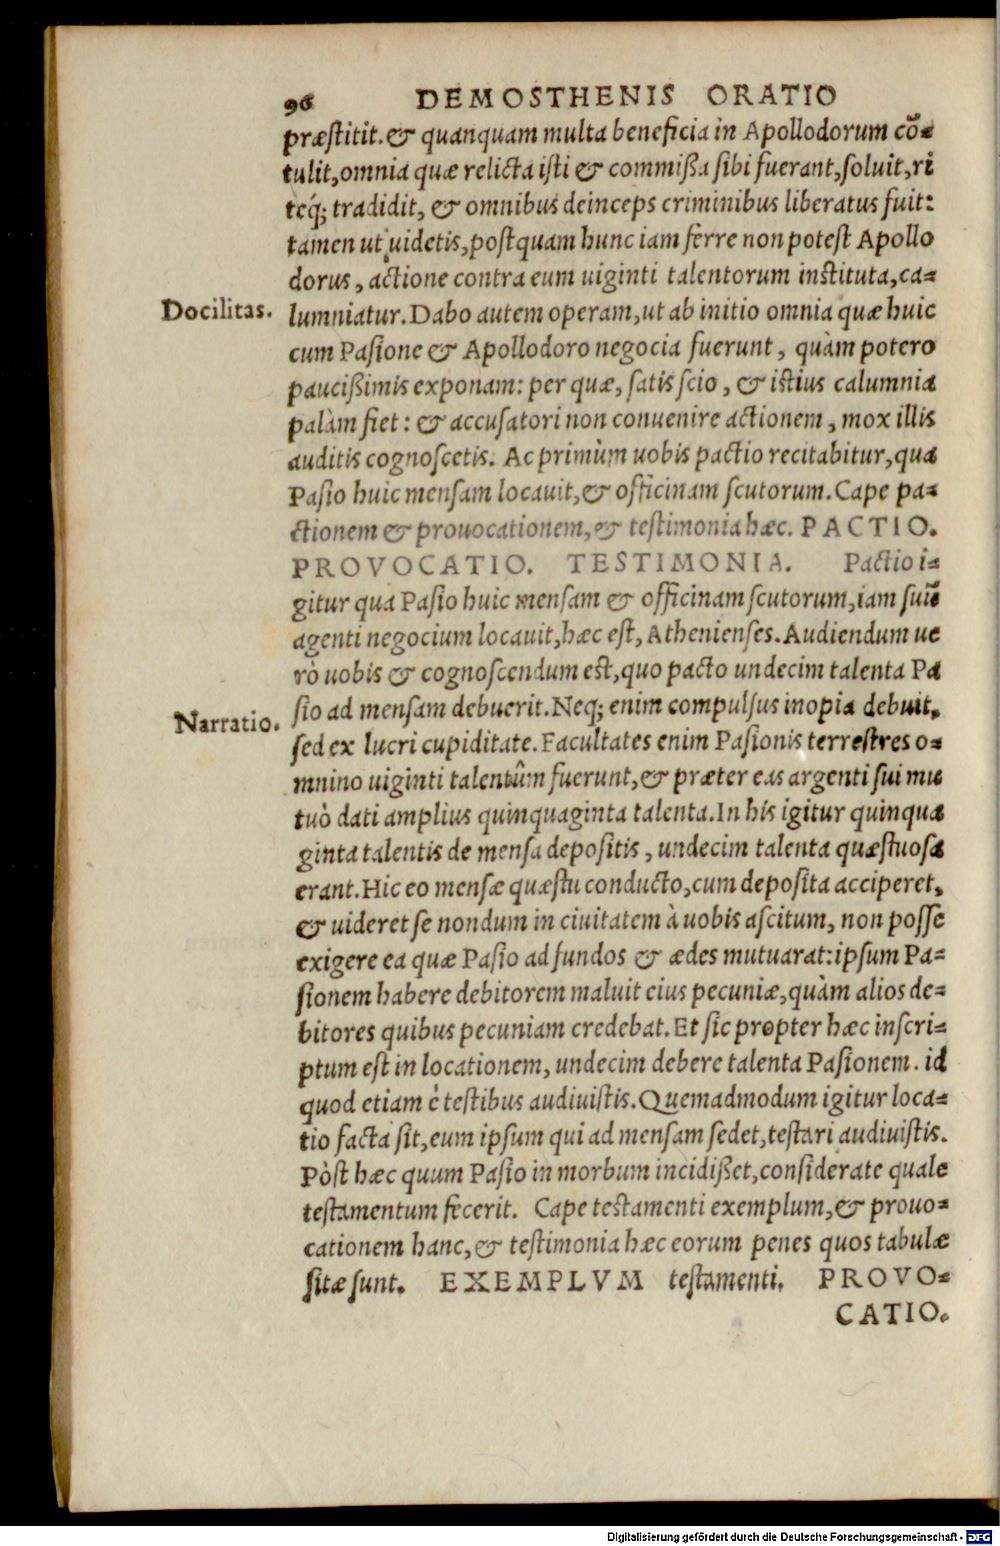 96 DEMOSTHENIS ORATIO
præstitit. & quanquam multa beneficia in Apollodorum cō-
tulit, omnia quæ relicta isti & commißa sibi fuerant, soluit, ri
teq́; tradidit, & omnibus deinceps criminibus liberatus fuit:
tamen ut uidetis, postquam hunc iam ferre non potest Apollo
dorus, actione contra eum uiginti talentorum instituta, ca-
Docilitas. lumniatur. Dabo autem operam, ut ab initio omnia quæ huic
cum Pasione & Apollodoro negocia fuerunt, quàm potero
paucißimis exponam: per quæ, satis scio, & istius calumnia
palàm fiet: & accusatori non conuenire actionem, mox illis
auditis cognoscetis. Ac primùm uobis pactio recitabitur, qua
Pasio huic mensam locauit, & officinam scutorum. Cape pa-
ctionem & prouocationem, & testimonia hæc. PACTIO.
PROVOCATIO. TESTIMONIA. Pactio i-
gitur qua Pasio huic mensam & officinam scutorum, iam suū
agenti negocium locauit, hæc est, Athenienses. Audiendum ue
rò uobis & cognoscendum est, quo pacto undecim talenta Pa
Narratio. sio ad mensam debuerit. Neq; enim compulsus inopia debuit,
sed ex lucri cupiditate. Facultates enim Pasionis terrestres o-
mnino uiginti talentûm fuerunt, & præter eas argenti sui mu
tuò dati amplius quinquaginta talenta. In his igitur quinqua
ginta talentis de mensa depositis, undecim talenta quæstuosa
erant. Hic eo mensæ quæstu conducto, cum deposita acciperet,
& uideret se nondum in ciuitatem à uobis ascitum, non posse
exigere ea quæ Pasio ad fundos & ædes mutuarat: ipsum Pa-
sionem habere debitorem maluit eius pecuniæ, quàm alios de-
bitores quibus pecuniam credebat. Et sic propter hæc inscri-
ptum est in locationem, undecim debere talenta Pasionem. id
quod etiam è testibus audiuistis. Quemadmodum igitur loca-
tio facta sit, eum ipsum qui ad mensam sedet, testari audiuistis.
Pòst hæc quum Pasio in morbum incidißet, considerate quale
testamentum fecerit. Cape testamenti exemplum, & prouo-
cationem hanc, & testimonia hæc eorum penes quos tabulæ
sitæ sunt. EXEMPLVM testamenti. PROVO-
CATIO.
Digitalisierung gefördert durch die Deutsche Forschungsgemeinschaft - DFG